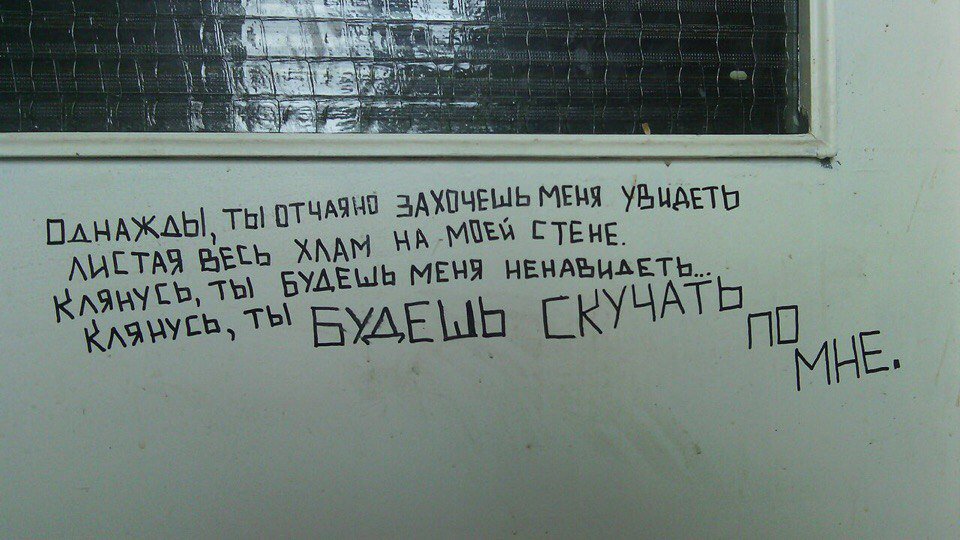 Однажды, ты отчаяно захочешь меня увидеть
листая весь хлам на моей стене.
Клянусь, ты будешь меня ненавидеть...
Клянусь, ты БУДЕШЬ СКУЧАТЬ
ПО
МНЕ.